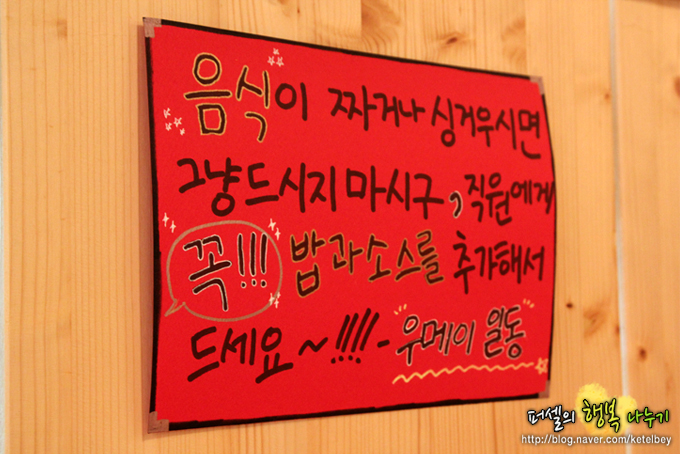 음식이 짜거나 싱거우시면
그냥 드시지 마시구, 직원에게
꼭!!! 밥과 소스를 추가해서
드세요~!!!!- 우메이 일동
퍼셀의 행복 나누기
http://blog.naver.com/ketelbey